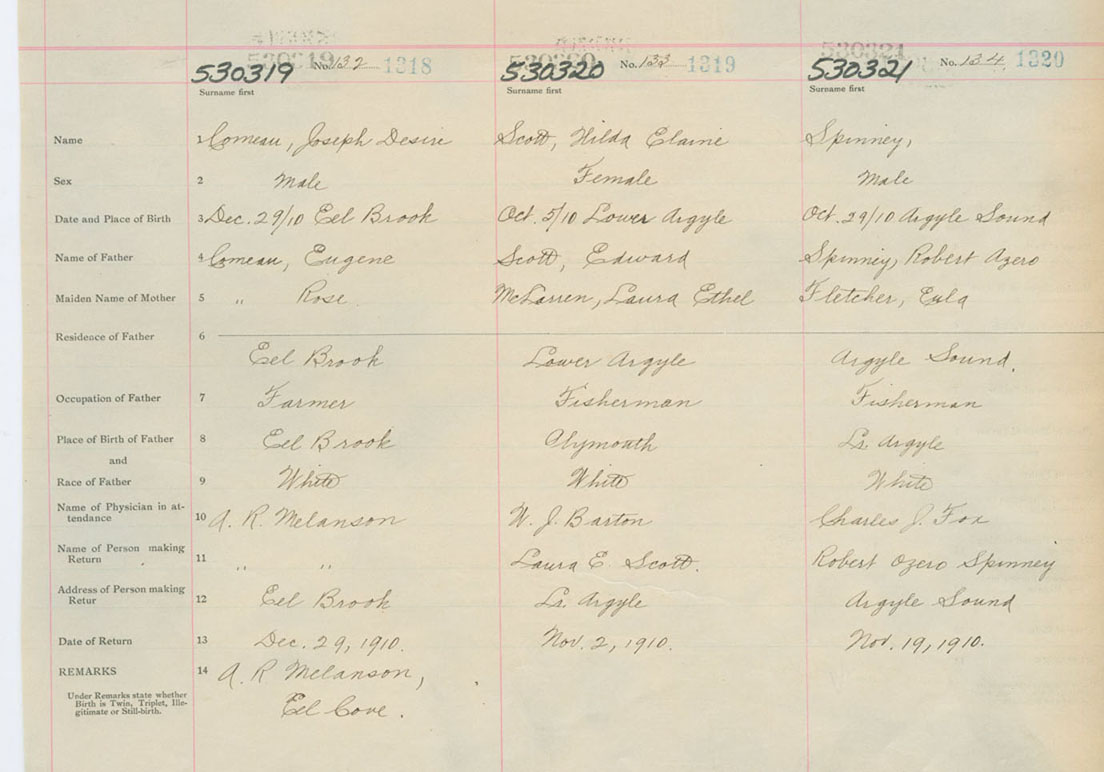 530319 No. 132 1318 530320 No. 133 1319 530321 No. 134 1320
Surname first Surname first Surname first
Name 1 Comeau, Joseph Desire Scott, Hilda Elaine Spinney,
Sex 2 Male Female Male
Date and Place of Birth 3 Dec. 29/10 Eel Brook Oct. 5/10 Lower Argyle Oct. 29/10 Argyle Sound
Name of Father 4 Comeau, Eugene Scott, Edward Spinney, Robert Azero
Maiden Name of Mother 5 " Rose McLarren, Laura Ethel Fletcher, Eula
Residence of Father 6
Eel Brook Lower Argyle Argyle Sound.
Occupation of Father 7 Farmer Fisherman Fisherman
Place of Birth of Father 8 Eel Brook Plymouth Lr. Argyle
and
Race of Father 9 White White White
Name of Physician in at-
tendance 10 A. R. Melanson W. J. Barton Charles J. Fox
Name of Person making
Return 11 " " Laura E. Scott. Robert Ozero Spinney
Address of Person making
Retur 12 Eel Brook Lr. Argyle Argyle Sound
Date of Return 13 Dec. 29, 1910. Nov. 2, 1910. Nov. 19, 1910.
REMARKS 14 A. R Melanson,
Under Remarks state whether
Birth is Twin, Triplet, Ille-
gitimate or Still-birth.
Eel Cove.